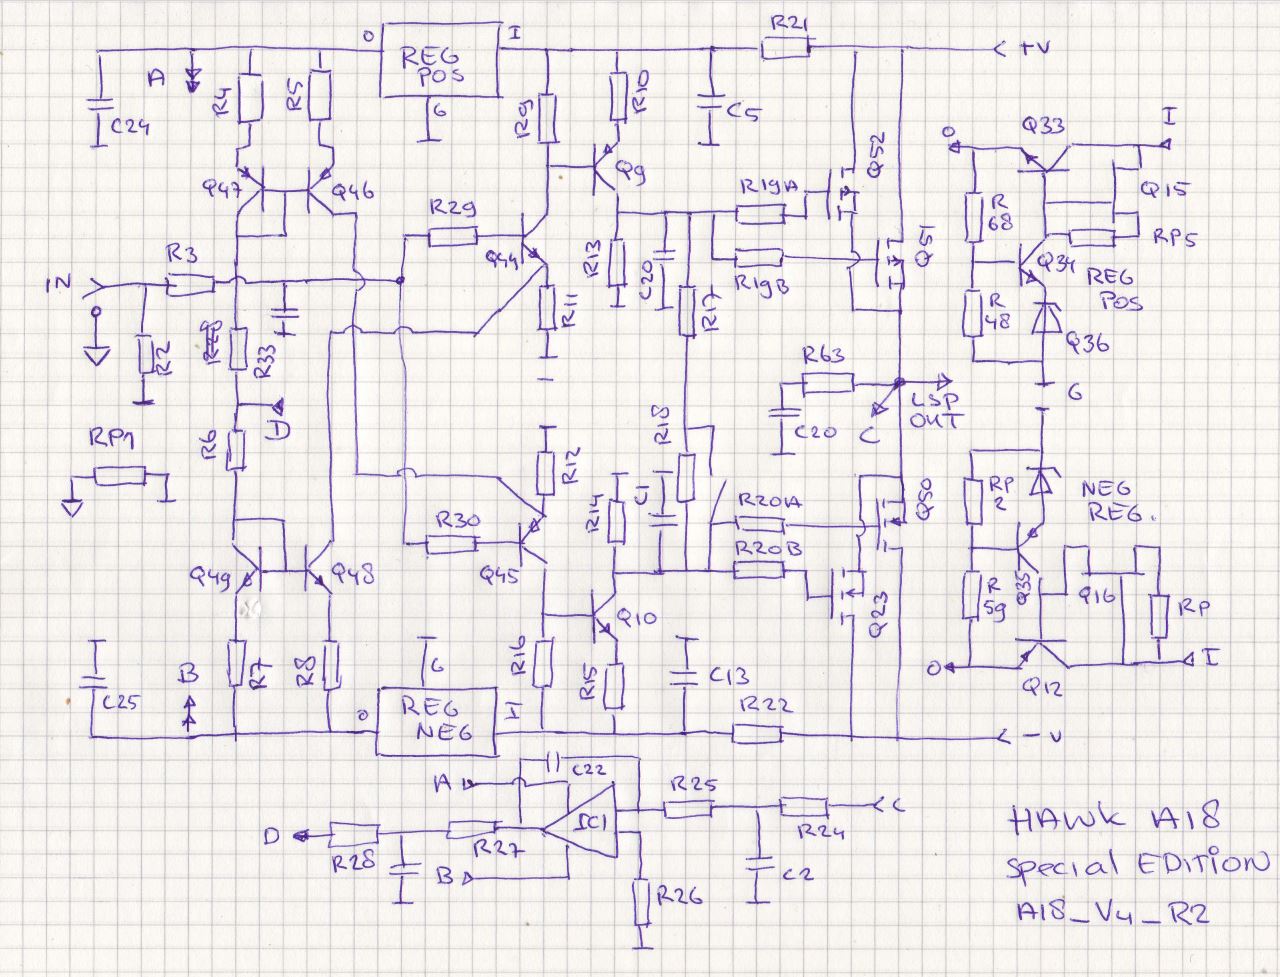 R21
O
REG
POS
I
+V
A
R4
R5
G
R9
R10
C24
C5
Q33
I
O
Q47
Q46
Q9
Q52
R19A
Q15
R
68
R29
RP5
R3
Q44
R13
C20
R19B
Q51
Q34
REG
POS
IN
R11
R17
R
48
Q36
R2
R33
R63
LSP
OUT
C20
C
G
D
RP1
R6
R12
R18
R14
C1
RP
2
NEG
REG.
R30
R20A
Q50
R20B
Q49
Q48
Q45
Q35
Q16
RP
Q10
Q23
R
59
B
R7
R8
G
R16
R15
C13
O
I
C25
Q12
O
REG
NEG
I
R22
-V
A
C22
R25
C
D
IC1
R24
R28
R27
B
C2
R26
HAWK A18
Special EDITION
A18_V4_R2